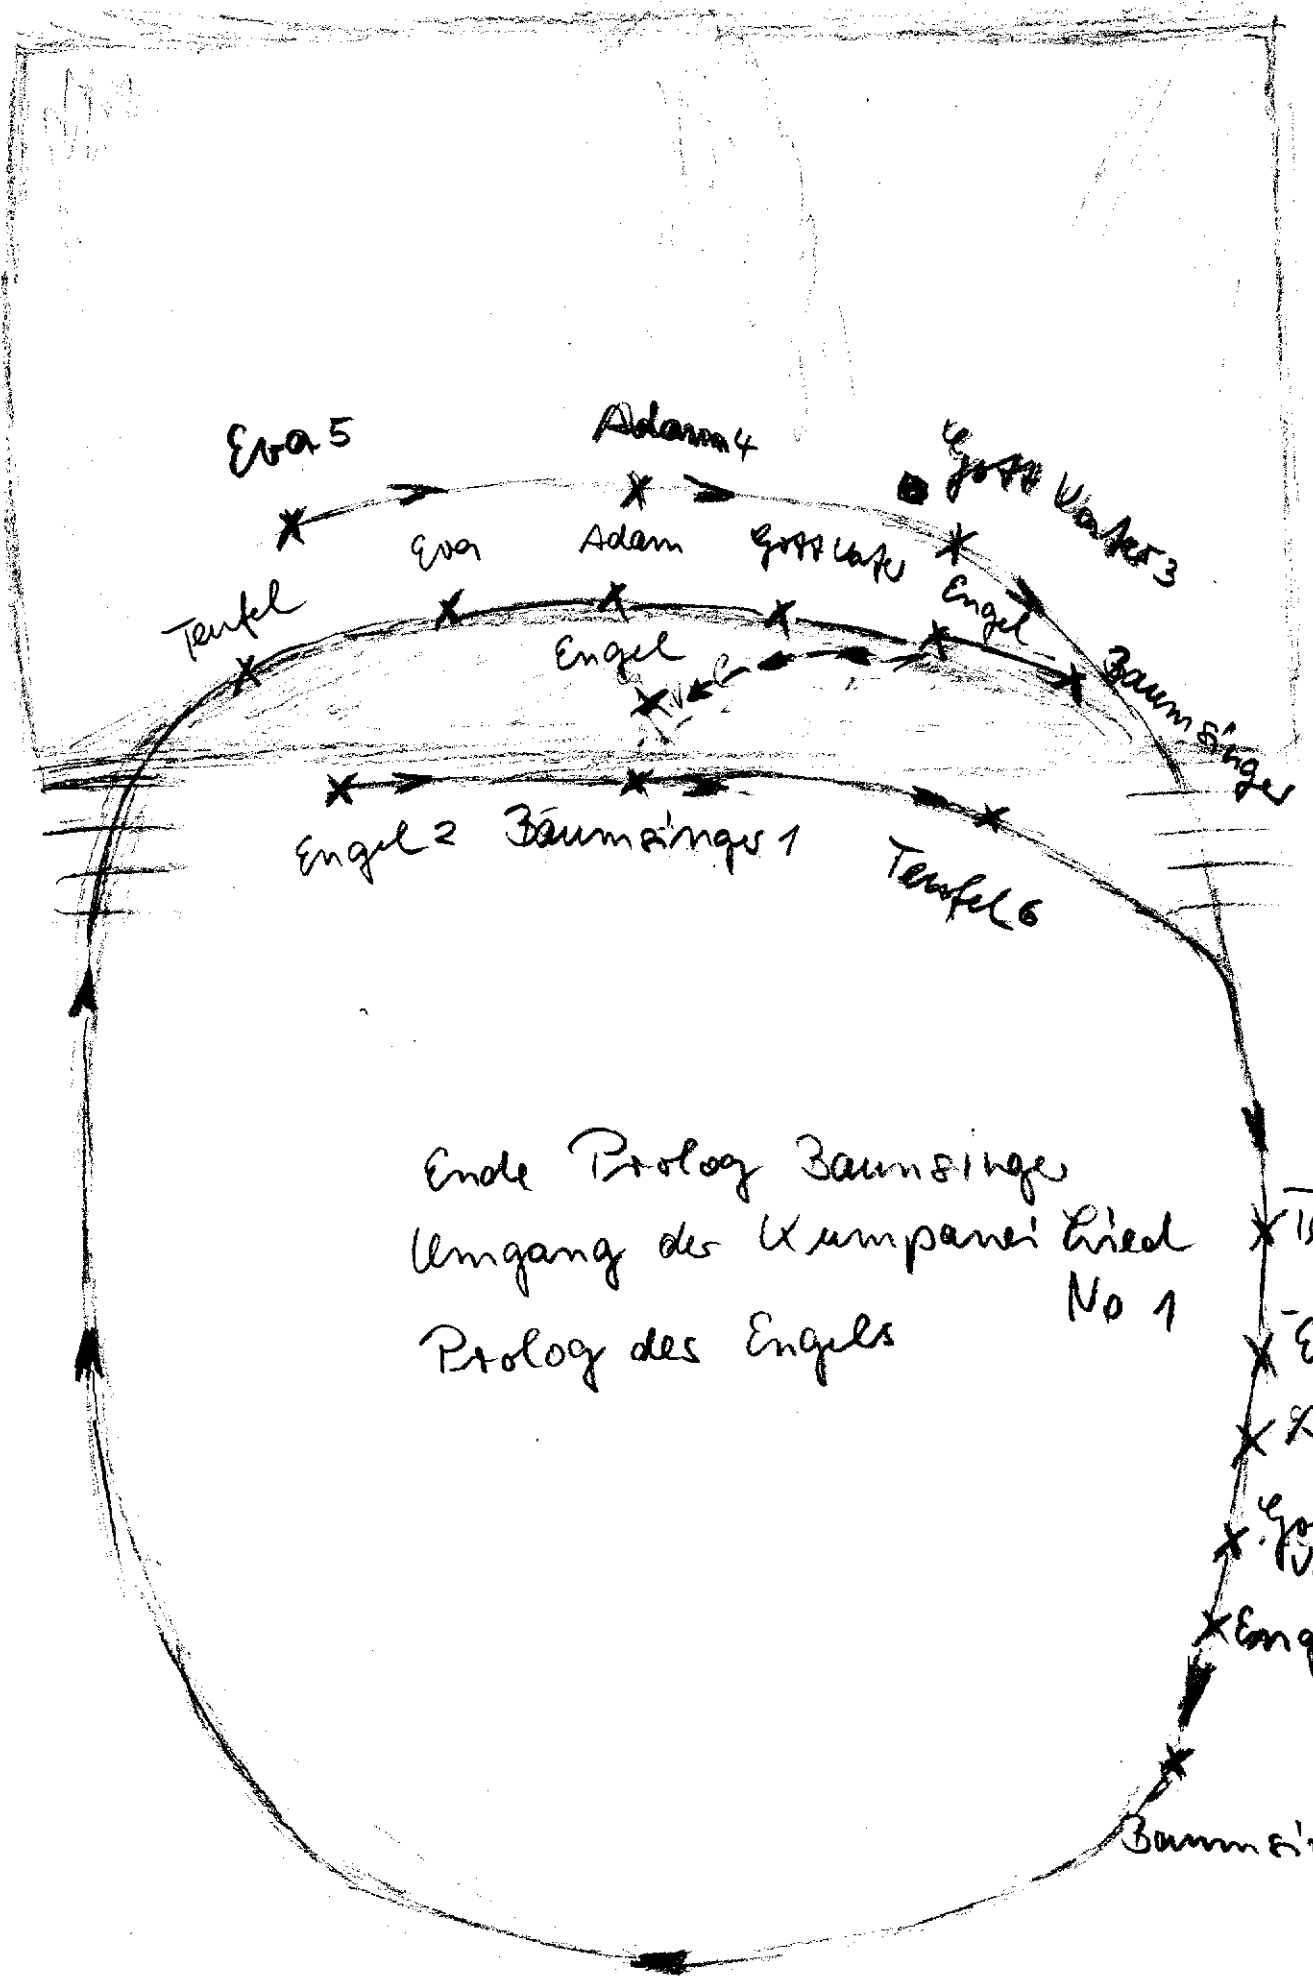 Eva 5
Adam 4
Gott Vater 3
Eva
Adam
Gott Vater
Engel
Teufel
Engel
Baumsinger
Engel 2
Baumsinger 1
Teufel 6
Ende Prolog Baumsinger
Umgang der Kumpanei Lied
No 1
Prolog des Engels
T
E
Go
V
Eng
Baumsi